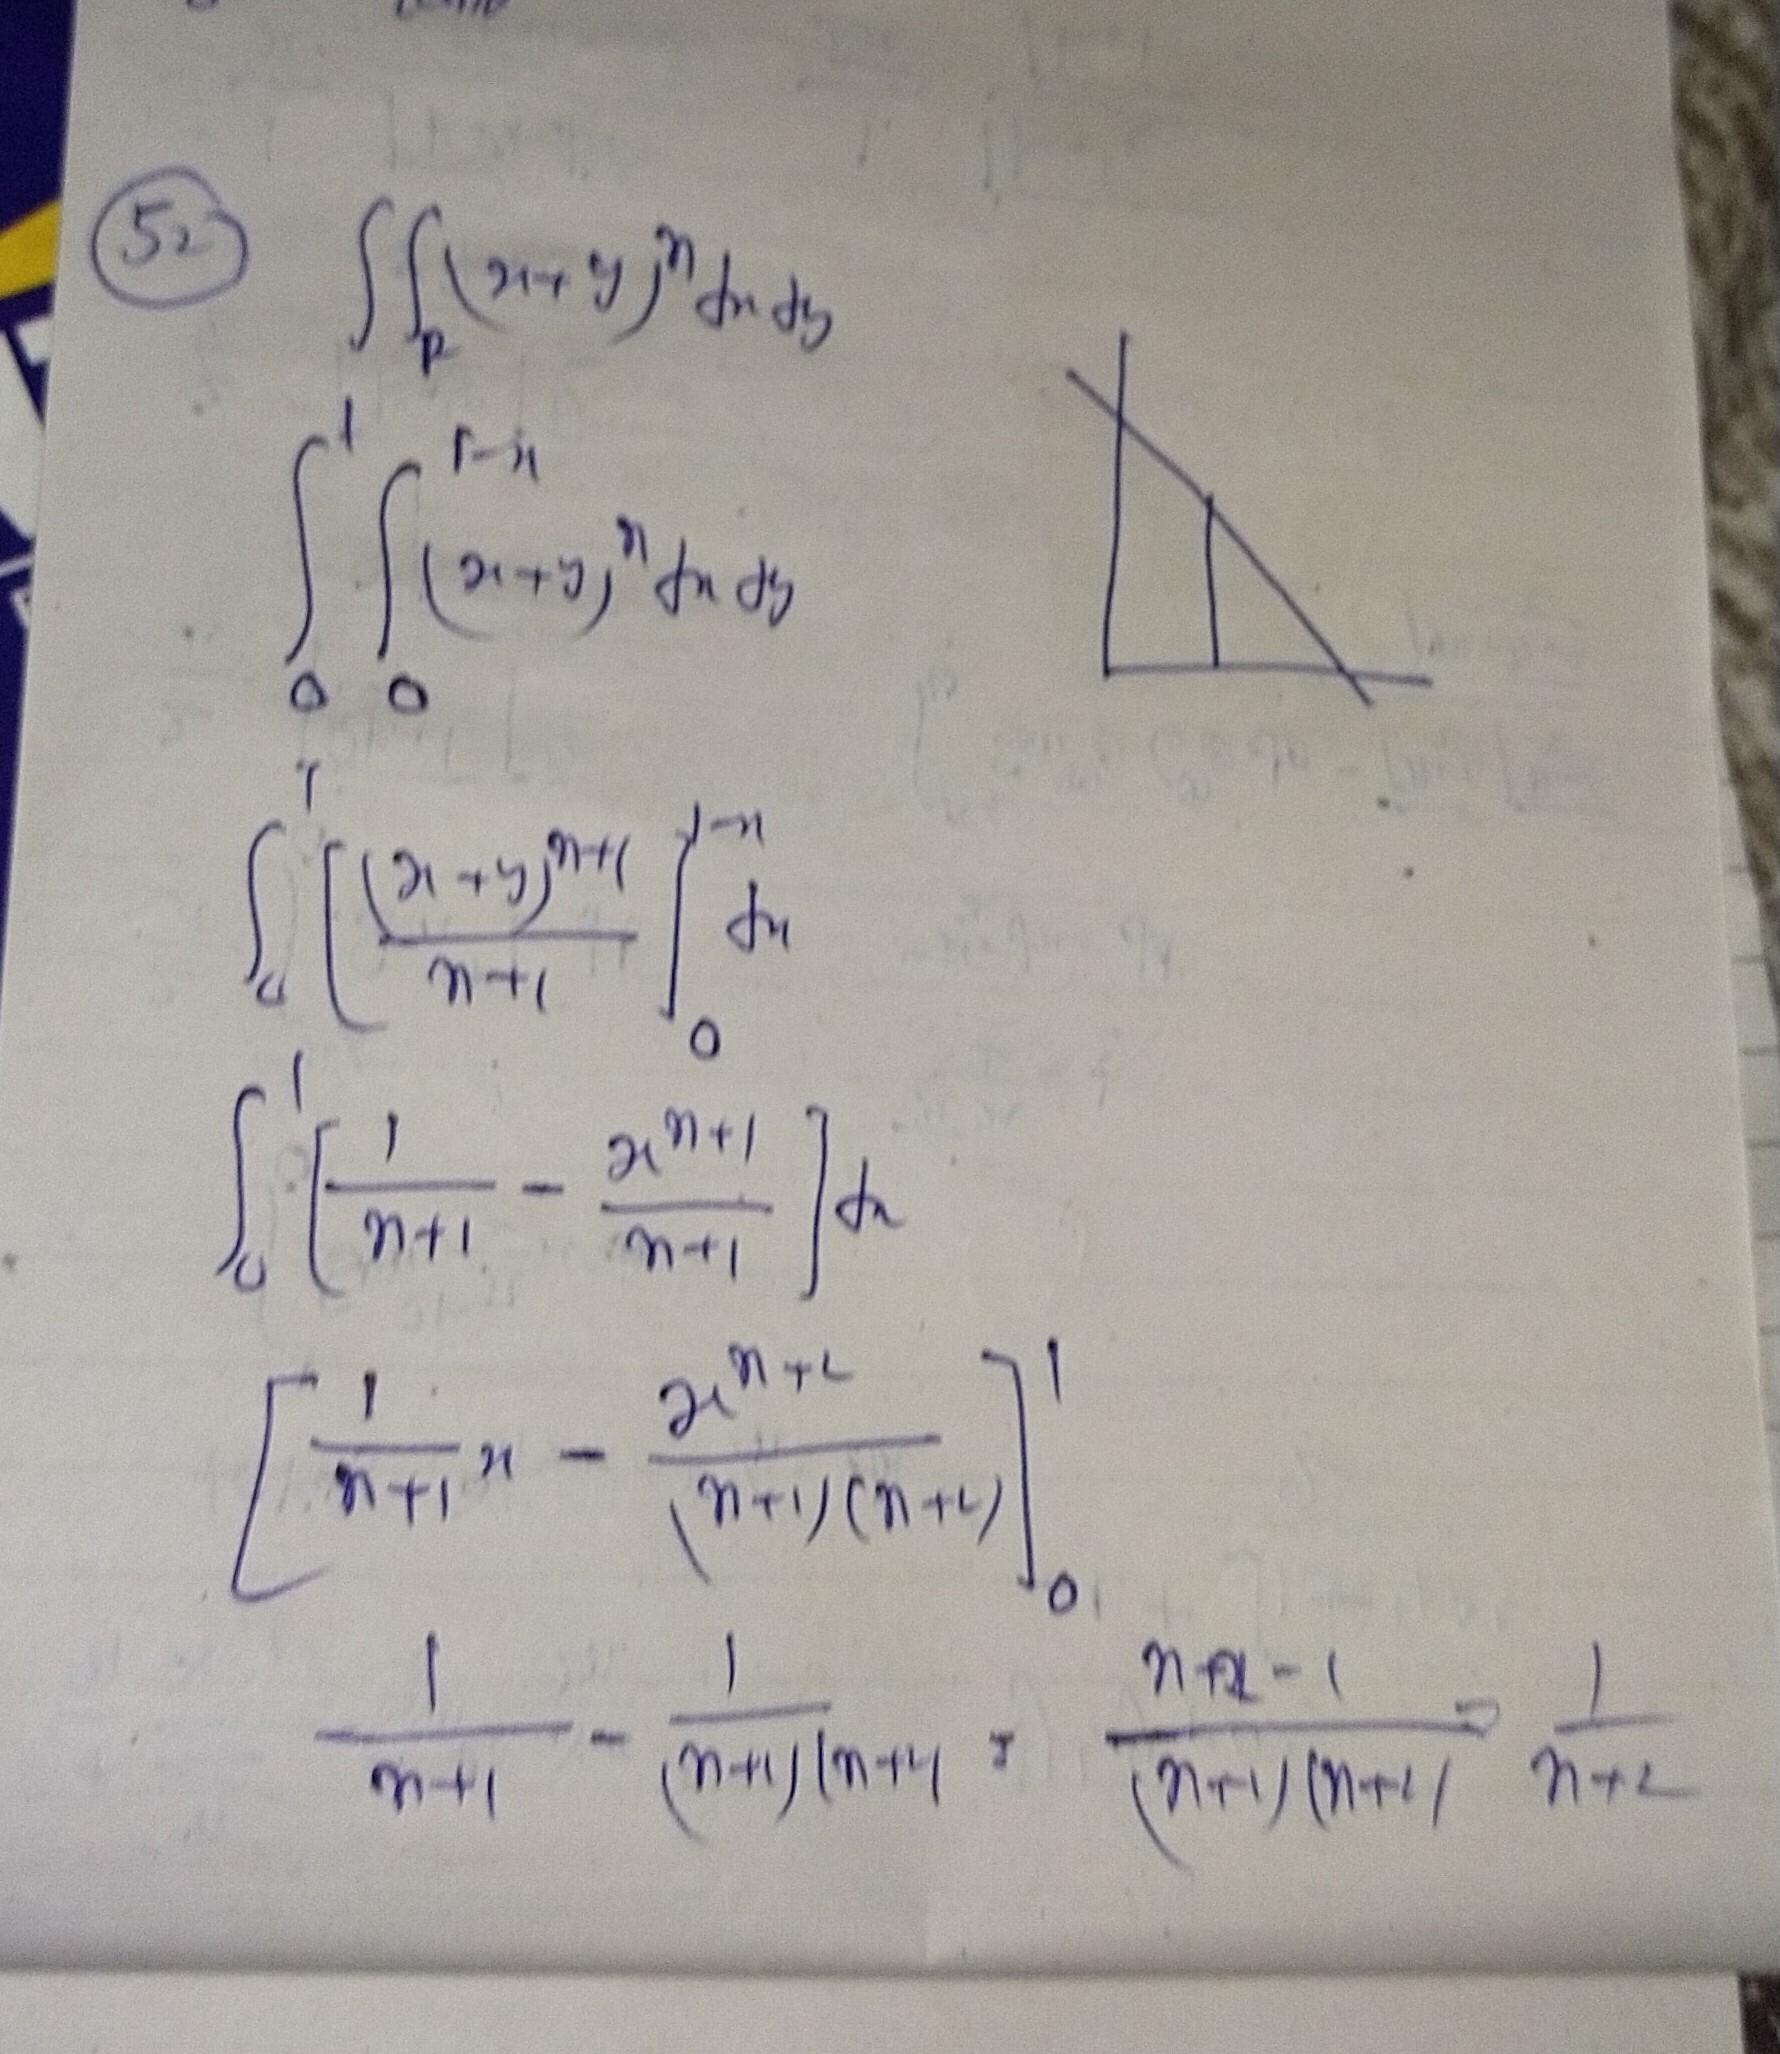 52 ∫∫_R (x+y)^n dx dy
∫_0^1 ∫_0^{1-x} (x+y)^n dx dy
∫_0^1 [ (x+y)^{n+1} / (n+1) ]_0^{1-x} dx
∫_0^1 [ 1/(n+1) - x^{n+1}/(n+1) ] dx
[ 1/(n+1) x - x^{n+2}/((n+1)(n+2)) ]_0^1
1/(n+1) - 1/((n+1)(n+2)) = (n+2-1)/((n+1)(n+2)) = 1/(n+2)